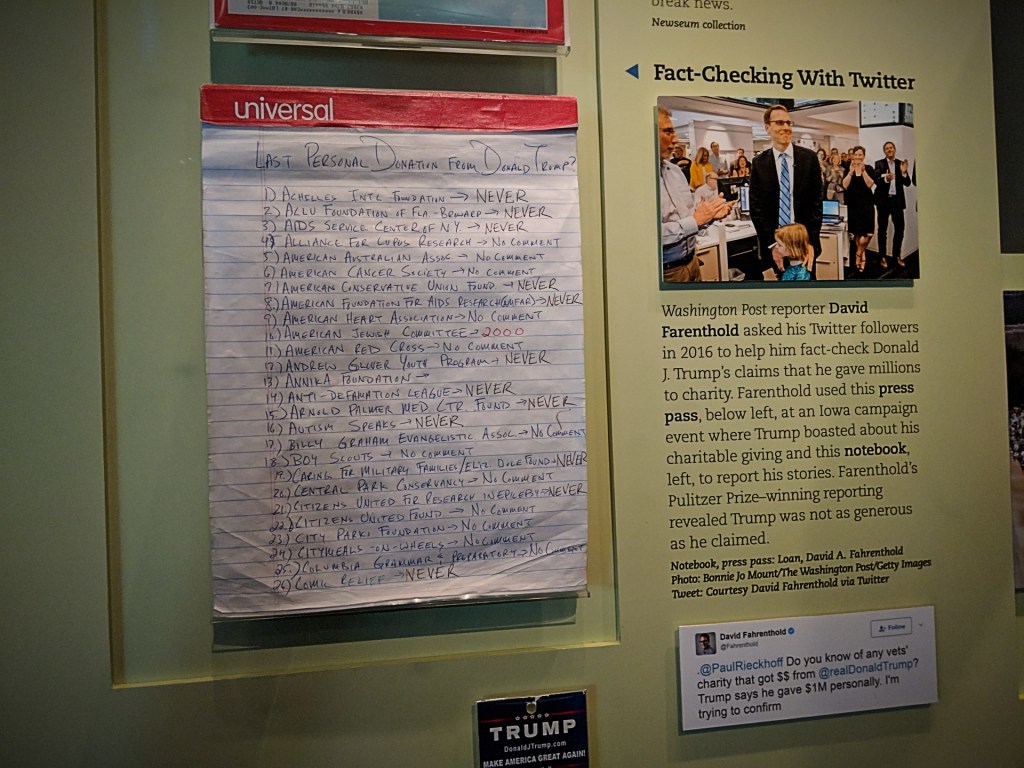 universal
LAST PERSONAL DONATION FROM DONALD TRUMP?
1) ACHELLES INTL FOUNDATION → NEVER
2) ACLU FOUNDATION OF FLA-BROWARD → NEVER
3) AIDS SERVICE CENTER OF N.Y. → NEVER
4) ALLIANCE FOR LUPUS RESEARCH → NO COMMENT
5) AMERICAN AUSTRALIAN ASSOC → NO COMMENT
6) AMERICAN CANCER SOCIETY → NO COMMENT
7) AMERICAN CONSERVATIVE UNION FOUND → NEVER
8) AMERICAN FOUNDATION FOR AIDS RESEARCH (AMFAR) → NEVER
9) AMERICAN HEART ASSOCIATION → NO COMMENT
10) AMERICAN JEWISH COMMITTEE → 2000
11.) AMERICAN RED CROSS → NO COMMENT
12.) ANDREW GLOVER YOUTH PROGRAM → NEVER
13) ANNIKA FOUNDATION →
14) ANTI-DEFAMATION LEAGUE → NEVER
15.) ARNOLD PALMER MED CTR. FOUND → NEVER
16.) AUTISM SPEAKS → NEVER
17.) BILLY GRAHAM EVANGELISTIC ASSOC → NO COMMENT
18.) BOY SCOUTS → NO COMMENT
19.) CARING FOR MILITARY FAMILIES/ELIZ. DOLE FOUND → NEVER
20.) CENTRAL PARK CONSERVANCY → NO COMMENT
21.) CITIZENS UNITED FOR RESEARCH IN EPILEPSY → NEVER
22.) CITIZENS UNITED FOUND → NO COMMENT
23.) CITY PARKS FOUNDATION → NO COMMENT
24.) CITYMEALS-ON-WHEELS → NO COMMENT
25.) COLUMBIA GRAMMAR & PREPARATORY → NO COMMENT
26) COMIC RELIEF → NEVER
TRUMP
DonaldJTrump.com
MAKE AMERICA GREAT AGAIN!
break news.
Newseum collection
Fact-Checking With Twitter
Washington Post reporter David
Farenthold asked his Twitter followers
in 2016 to help him fact-check Donald
J. Trump's claims that he gave millions
to charity. Farenthold used this press
pass, below left, at an Iowa campaign
event where Trump boasted about his
charitable giving and this notebook,
left, to report his stories. Farenthold's
Pulitzer Prize–winning reporting
revealed Trump was not as generous
as he claimed.
Notebook, press pass: Loan, David A. Fahrenthold
Photo: Bonnie Jo Mount/The Washington Post/Getty Images
Tweet: Courtesy David Fahrenthold via Twitter
David Fahrenthold
@Fahrenthold
Follow
.@PaulRieckhoff Do you know of any vets'
charity that got $$ from @realDonaldTrump?
Trump says he gave $1M personally. I'm
trying to confirm